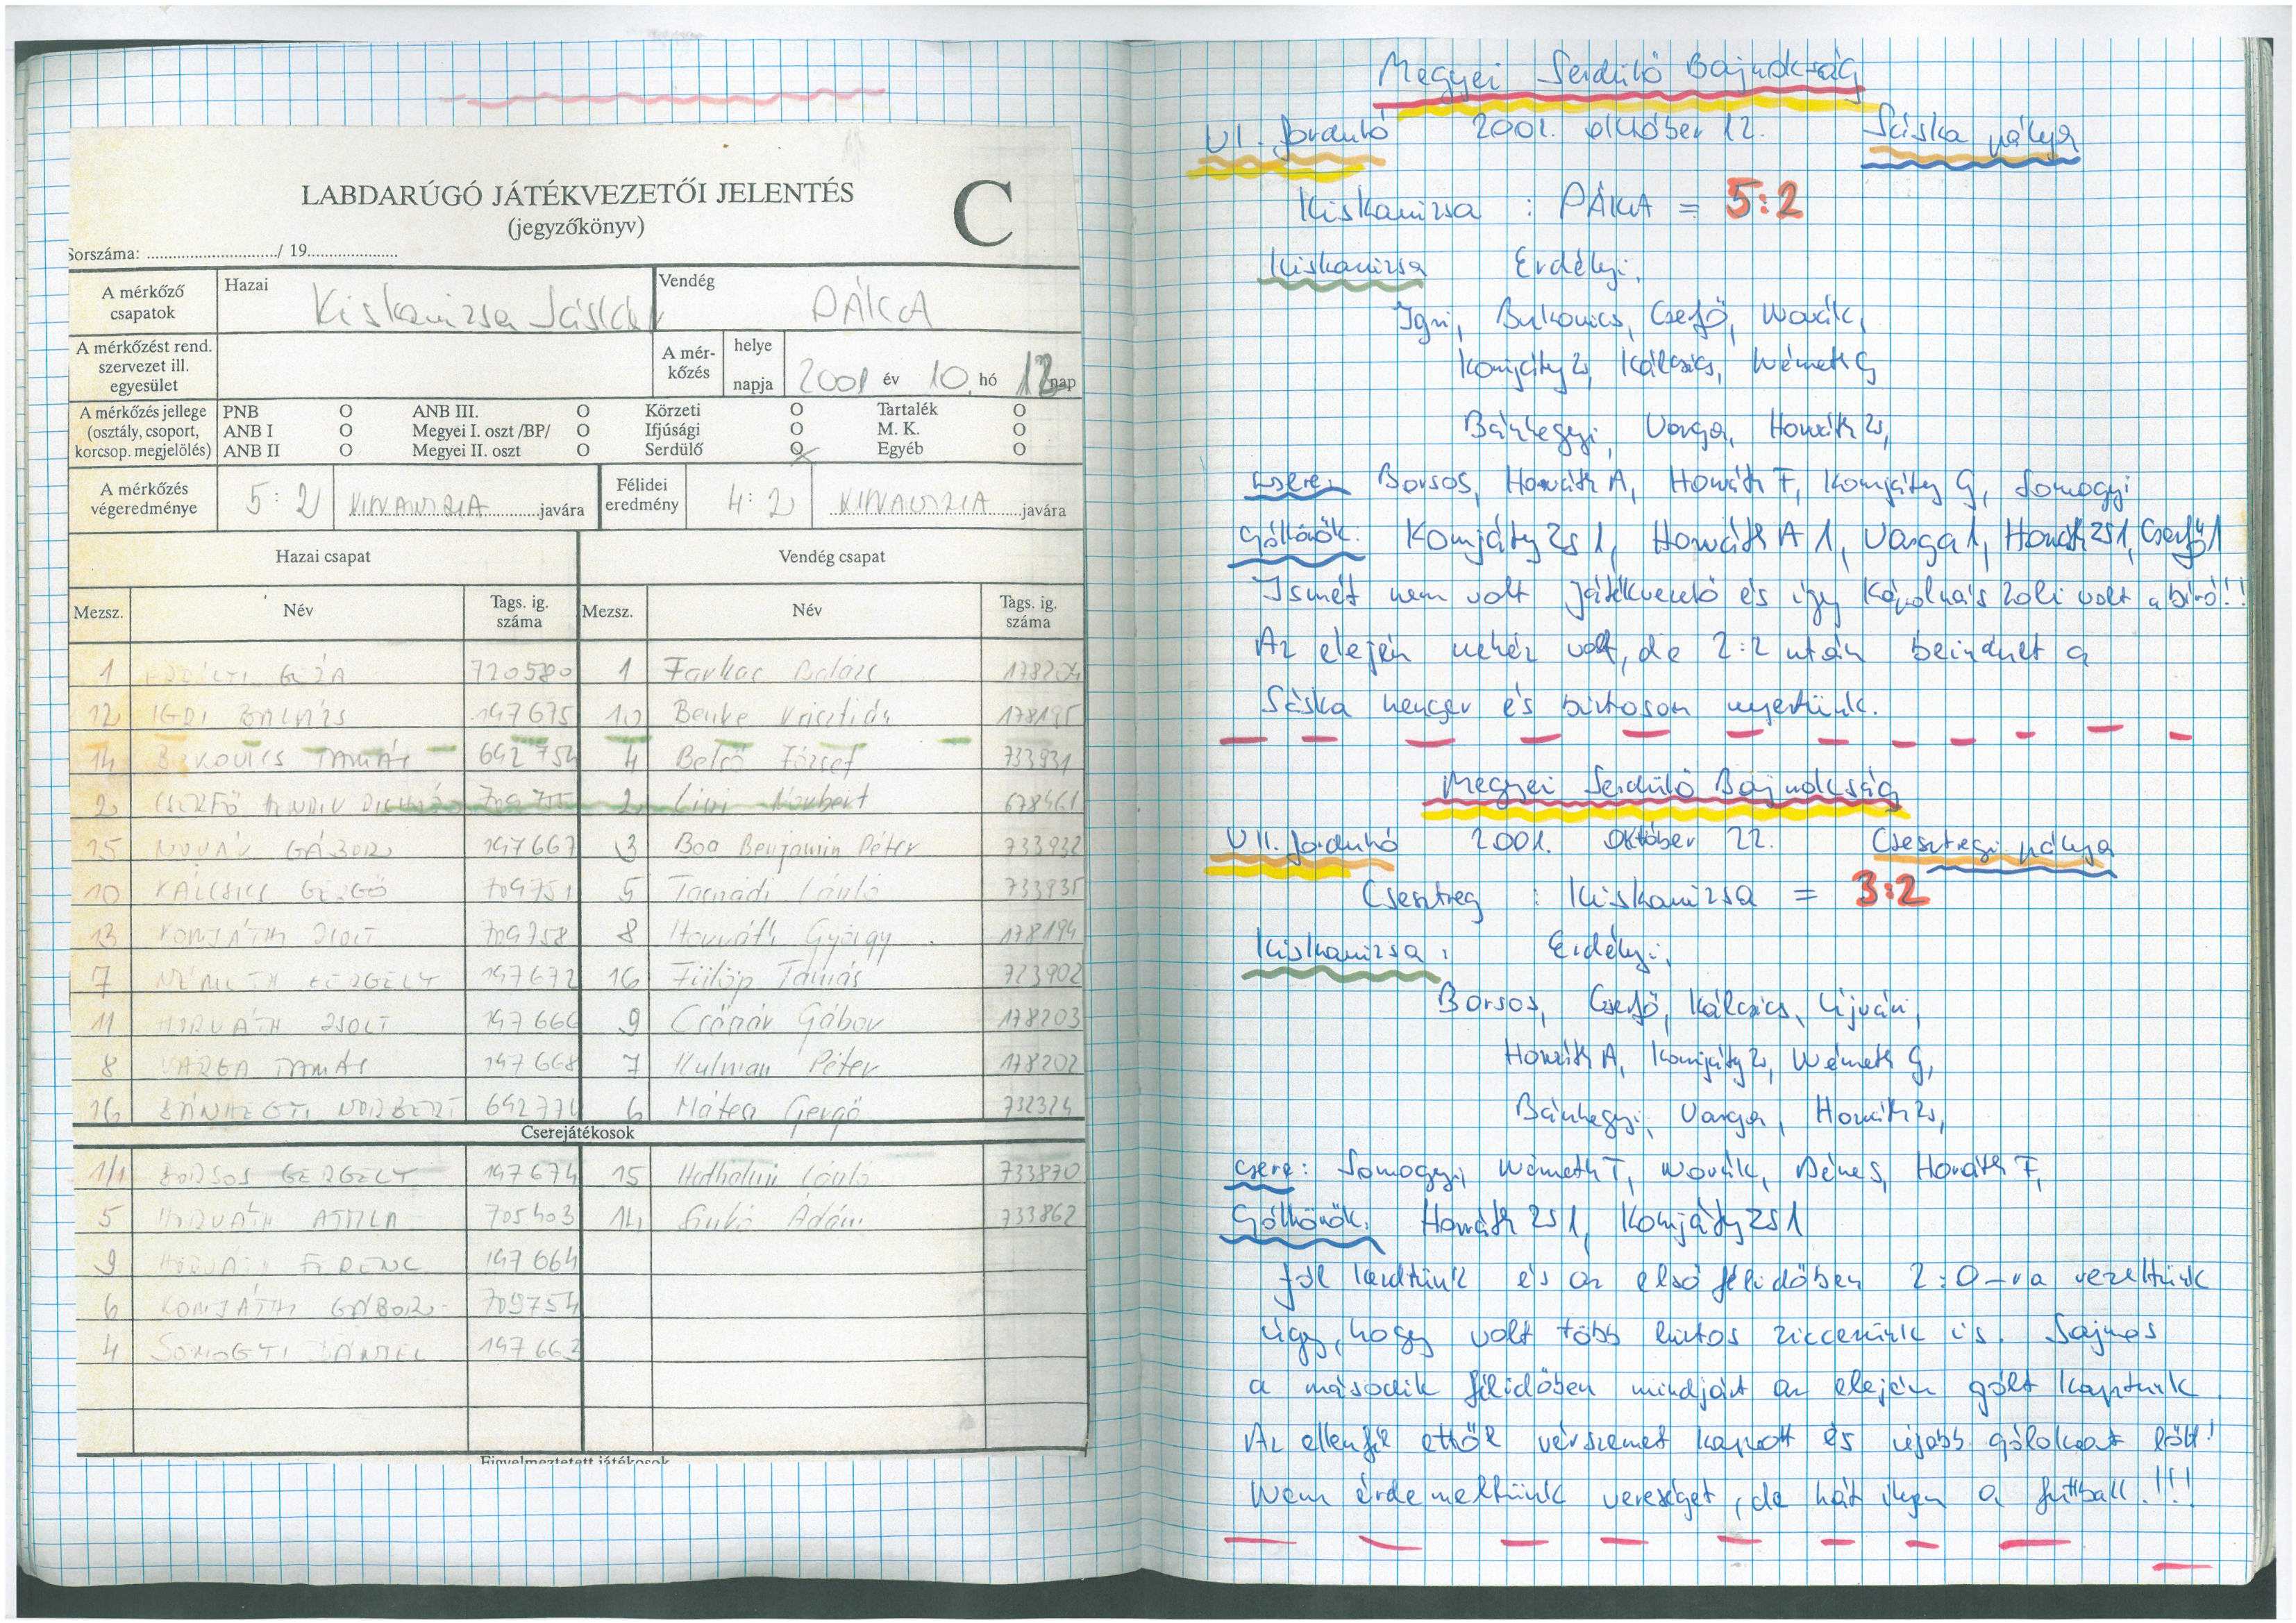 LABDARÚGÓ JÁTÉKVEZETŐI JELENTÉS
(jegyzőkönyv)
C
Sorszáma: ............................../ 19......................
A mérkőző csapatok
Hazai Kiskanizsa Sáskák
Vendég PÁKA
A mérkőzést rend. szervezet ill. egyesület
A mérkőzés helye
napja 2001 év 10. hó 12 nap
A mérkőzés jellege (osztály, csoport, korcsop. megjelölés)
PNB O ANB III. O Körzeti O Tartalék O
ANB I O Megyei I. oszt /BP/ O Ifjúsági O M. K. O
ANB II O Megyei II. oszt O Serdülő O Egyéb O
A mérkőzés végeredménye 5:2 javára
Félidei eredmény 4:2 javára
Hazai csapat Vendég csapat
Mezsz. Név Tags. ig. száma Mezsz. Név Tags. ig. száma
1 GÉZA 720580 1 Farkas Balázs 178204
12 BALÁZS 197675 10 Benke Krisztián 178195
14 BUKOVICS TAMÁS 692754 4 Belső József 733931
2 CSERFŐ 2 Norbert 678461
15 NOVÁK GÁBOR 197667 3 Boa Benjamin Péter 733932
10 KÁLCSICS GERGŐ 709751 5 László 733935
13 KOMJÁTHI ZSOLT 709758 8 Horváth György 178194
7 NÉMETH GERGELY 197672 16 Fülöp Tamás 723902
11 HORVÁTH ZSOLT 197666 9 Gábor 178203
8 VARGA TAMÁS 197668 7 Kulman Péter 178202
16 BÁNHEGYI NORBERT 692771 6 Gergő 732324
Cserejátékosok
1/1 BORSOS GERGELY 197674 15 László 733870
5 HORVÁTH ATTILA 705403 14 Ádám 733862
9 HORVÁTH FERENC 197664
6 KOMJÁTHI GÁBOR 709754
4 SOMOGYI DÁNIEL 197663
Figyelmeztetett játékosok
Megyei Serdülő Bajnokság
VI. forduló 2001. október 12. Sáska pálya
Kiskanizsa : PÁKA = 5:2
Kiskanizsa Erdélyi,
Igri, Bukovics, Cserfő, Novák,
Komjáty Zs, Kálcsics, Németh G
Bánhegyi, Varga, Horváth Zs,
csere: Borsos, Horváth A, Horváth F, Komjáty G, Somogyi
Góllövők: Komjáty Zs 1, Horváth A 1, Varga 1, Horváth Zs 1, Cserfő 1
Ismét nem volt játékvezető és így Kápolnás Zoli volt a bíró!!
Az elején nehéz volt, de 2:2 után beindult a
Sáska henger és biztosan nyertünk.
Megyei Serdülő Bajnokság
VII. forduló 2001. Október 22. Csesztregi pálya
Csesztreg : Kiskanizsa = 3:2
Kiskanizsa: Erdélyi,
Borsos, Cserfő, Kálcsics, Újvári,
Horváth A, Komjáty Zs, Németh G,
Bánhegyi, Varga, Horváth Zs,
csere: Somogyi, Németh T, Novák, Dénes, Horváth F,
Góllövők: Horváth Zs 1, Komjáty Zs 1
Jól kezdtünk és az első félidőben 2:0-ra vezettünk
úgy, hogy volt több biztos ziccerünk is. Sajnos
a második félidőben mindjárt az elején gólt kaptunk
Az ellenfél ettől vérszemet kapott és újabb gólokat lőtt!
Nem érdemeltünk vereséget, de hát ilyen a futball!!!